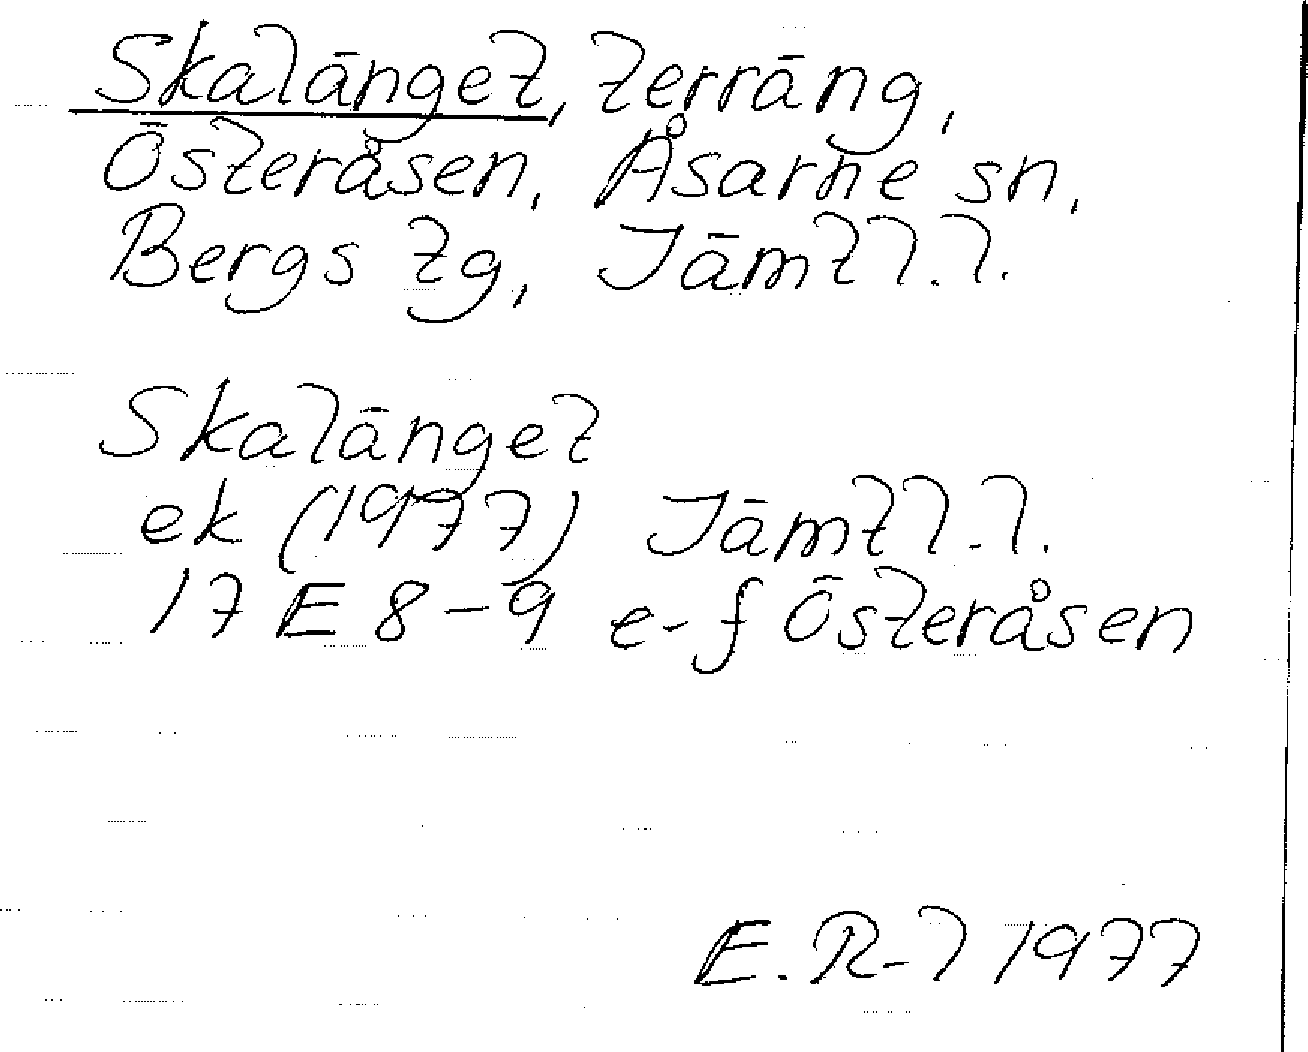 Skalänget, terräng,
Österåsen, Åsarne sn,
Bergs tg, Jämtl.l.
Skalänget
ek (1977) Jämtl.l.
17 E 8-9 e-f Österåsen
E. R-l 1977